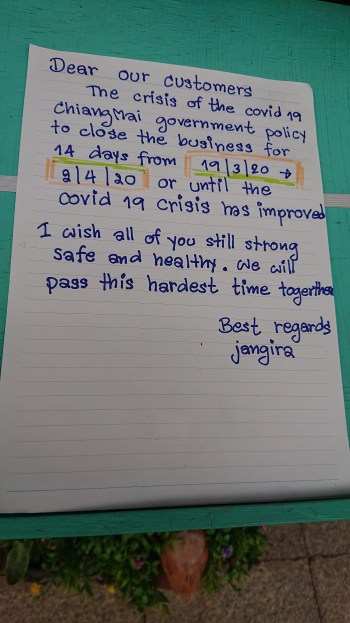 Dear our customers
The crisis of the covid 19
ChiangMai government policy
to close the business for
14 days from 19|3|20 →
2|4|20 or until the
covid 19 crisis has improved
I wish all of you still strong
safe and healthy. We will
pass this hardest time together
Best regards
jangira